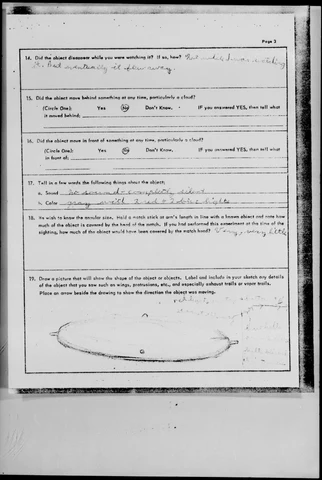 Page 3
14. Did the object disappear while you were watching it? If so, how? Not while I was watching
it. But eventually it flew away
15. Did the object move behind something at any time, particularly a cloud?
(Circle One): Yes No Don't Know. (If you answered YES, then tell what
it moved behind:
16. Did the object move in front of something at any time, particularly a cloud?
(Circle One): Yes No Don't Know. (If you answered YES, then tell what
in front of:
17. Tell in a few words the following things about the object:
a. Sound no sound - completely silent
b. Color gray with 2 red + 2 blue lights
18. We wish to know the angular size. Hold a match stick at arm's length in line with a known object and note how
much of the object is covered by the head of the match. If you had performed this experiment at the time of the
sighting, how much of the object would have been covered by the match head? Very, very little
19. Draw a picture that will show the shape of the object or objects. Label and include in your sketch any details
of the object that you saw such as wings, protrusions, etc., and especially exhaust trails or vapor trails.
Place an arrow beside the drawing to show the direction the object was moving.